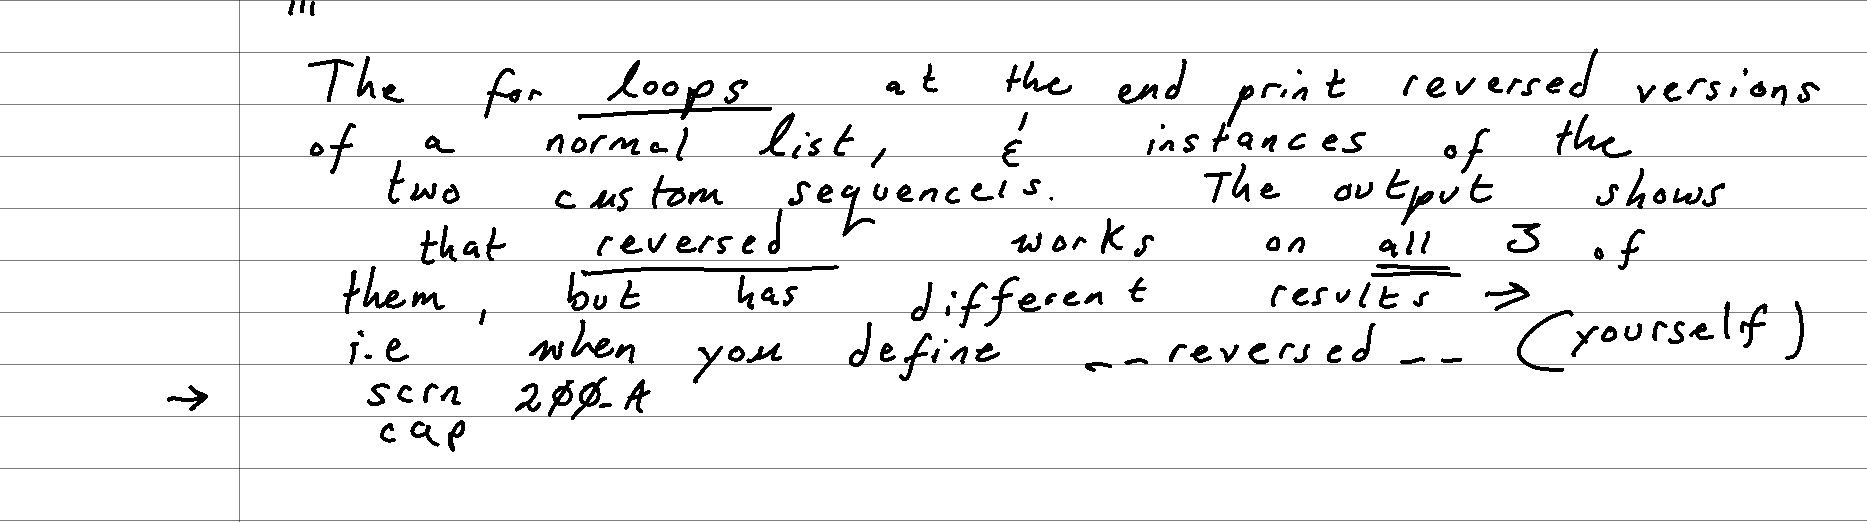 The for loops at the end print reversed versions
of a normal list, & instances of the
two custom sequences. The output shows
that reversed works on all 3 of
them, but has different results →
i.e when you define __reversed__ (yourself)
→ scrn 200-A
cap